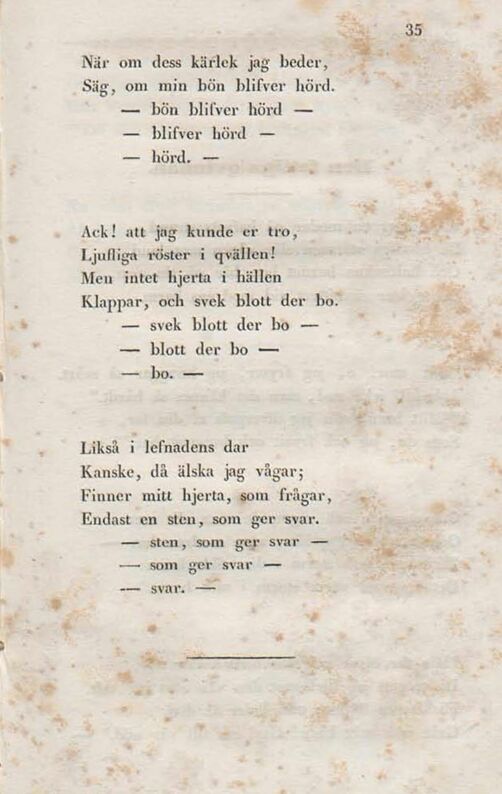 35
När om dess kärlek jag beder,
Säg, om min bön blifver hörd.
— bön blifver hörd —
— blifver hörd —
— hörd. —
Ack! att jag kunde er tro,
Ljufliga röster i qvällen!
Men intet hjerta i hällen
Klappar, och svek blott der bo.
— svek blott der bo —
— blott der bo —
— bo. —
Likså i lefnadens dar
Kanske, då älska jag vågar;
Finner mitt hjerta, som frågar,
Endast en sten, som ger svar.
— sten, som ger svar —
— som ger svar —
— svar. —